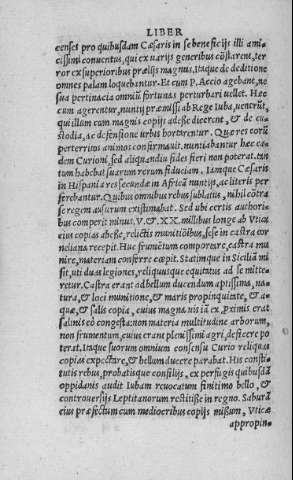 LIBER
censes pro quibusdam Cæsaris in se beneficijs illi ami
cissimi conuentus, qui ex uarijs generibus cōstaret, ter
ror ex superioribus prælijs magnus. Itaque de deditione
omnes palam loquebantur. Et cum P. Accio agebant, ne
sua pertinacia omniū fortunas perturbari uellet. Hæc
cum agerentur, nuntij præmissi ab Rege Iuba, uenerūt,
qui illum cum magnis copijs adesse dicerent, & de cu-
stodia, ac defensione urbis hortarentur. Quæ res eorū
perterritos animos confirmauit. nuntiabantur hæc ea-
dem Curioni, sed aliquandiu fides fieri non poterat. tan
tum habebat suarum rerum fiduciam. Iamque Cæsaris
in Hispania res secundæ in Africā nuntijs, ac literis per
ferebantur. Quibus omnibus rebus sublatus, nihil cōtra
se regem ausurum existimabat. Sed ubi certis authori-
bus comperit minus. V. & XX. millibus longe ab Vtica
eius copias abesse, relictis munitiōibus, sese in castra cor
neliana recepit. Huc frumētum comportare, castra mu
nire, materiam conferre cœpit. Statimque in Siciliā mi
sit, uti duæ legiones, reliquusque equitatus ad se mitte-
retur. Castra erant ad bellum ducendum aptissima, na-
tura, & loci munitione, & maris propinquitate, & a-
quæ, & salis copia, cuius magna uis iā ex proximis erat
salinis eo congesta: non materia multitudine arborum,
non frumentum, cuius erant plenissimi agri, deficere po
terat. itaque suorum omnium consensu Curio reliquas
copias expectare, & bellum ducere parabat. His consti-
tutis rebus, probatisque consilijs, ex perfugis quibusdā
oppidanis audit Iubam reuocatum finitimo bello, &
controuersijs Leptitanorum restitisse in regno. Saburā
eius præfectum cum mediocribus copijs missum, Vticæ
appropin-